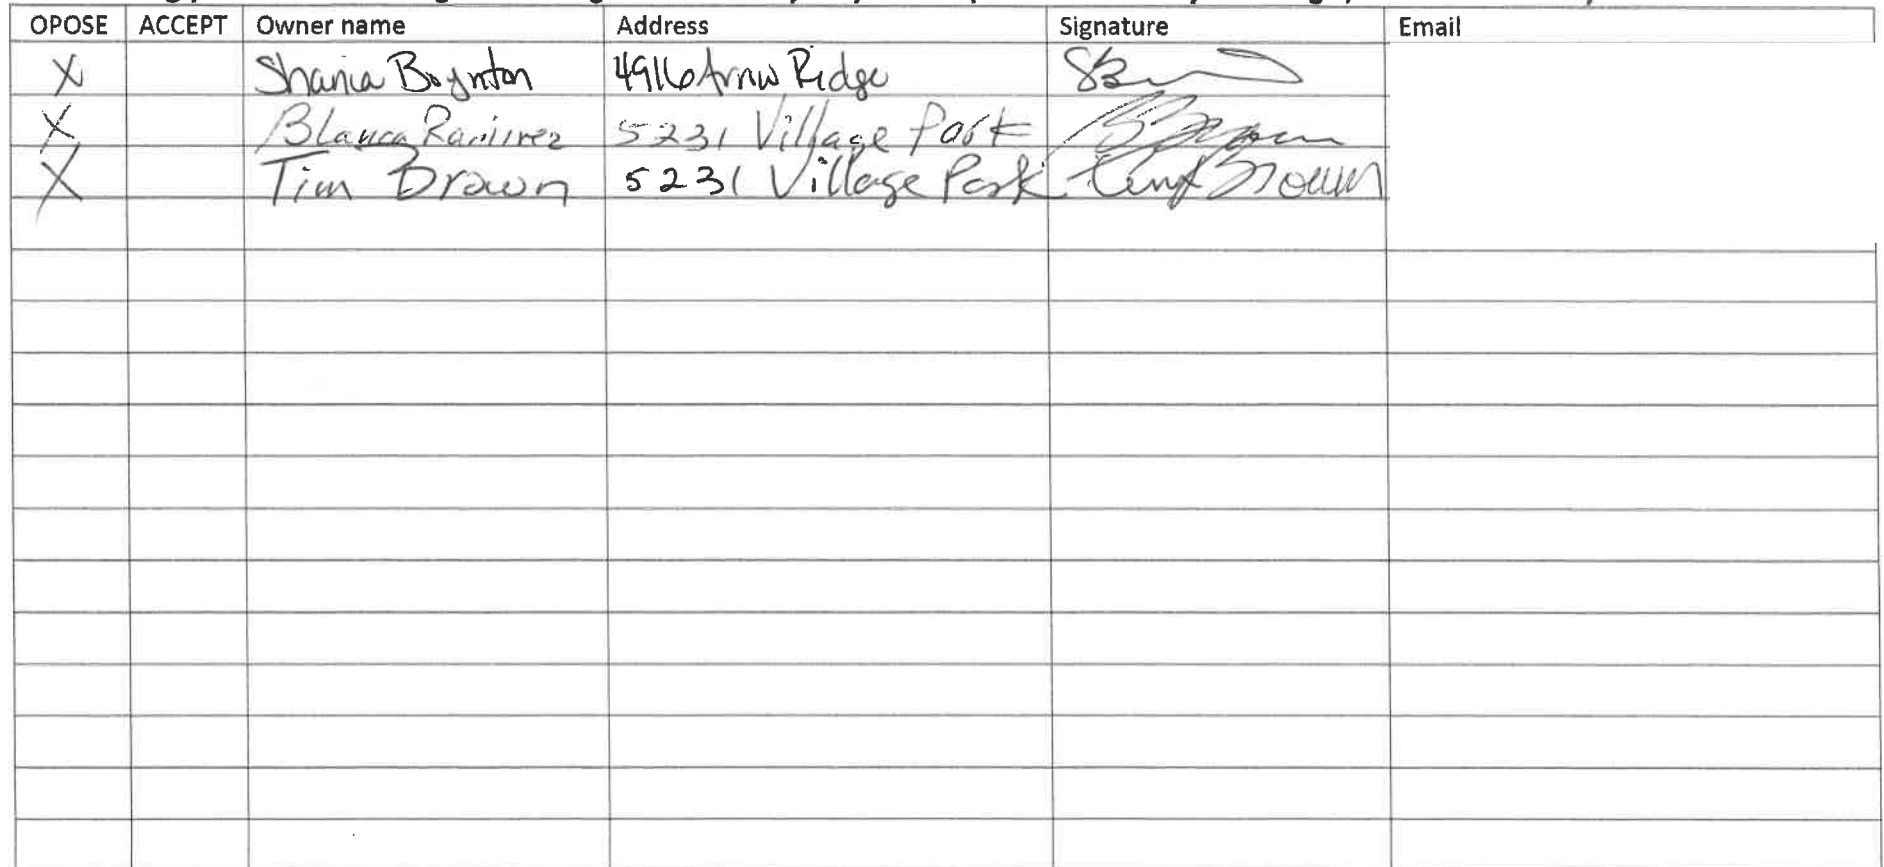 OPOSE ACCEPT Owner name Address Signature Email
X Shania Boynton 4916 Arrow Ridge
X Blanca Ramirez 5231 Village Park
X Tim Brown 5231 Village Park Tim Brown